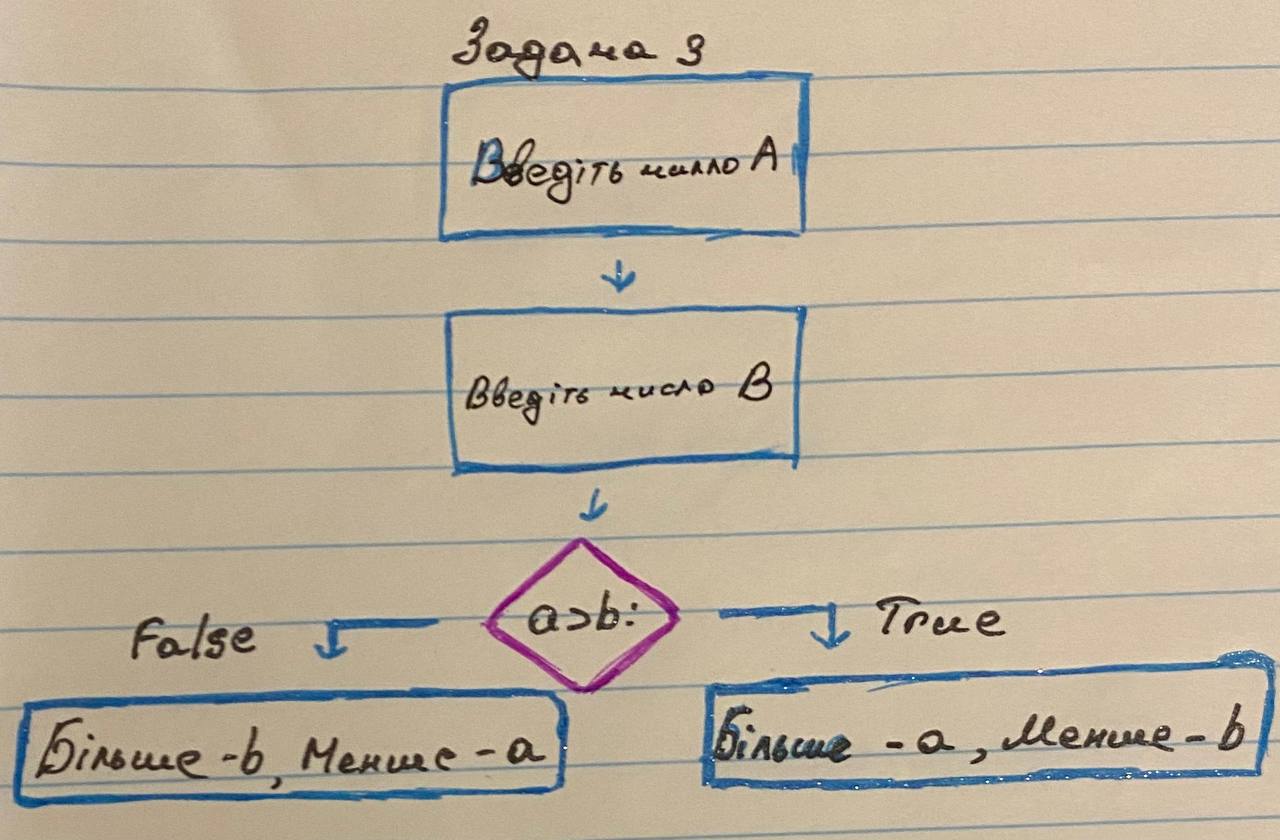 Задача 3
Введіть число A
Введіть число B
a>b:
False
True
Більше -b, Менше -a
Більше -a, Менше -b